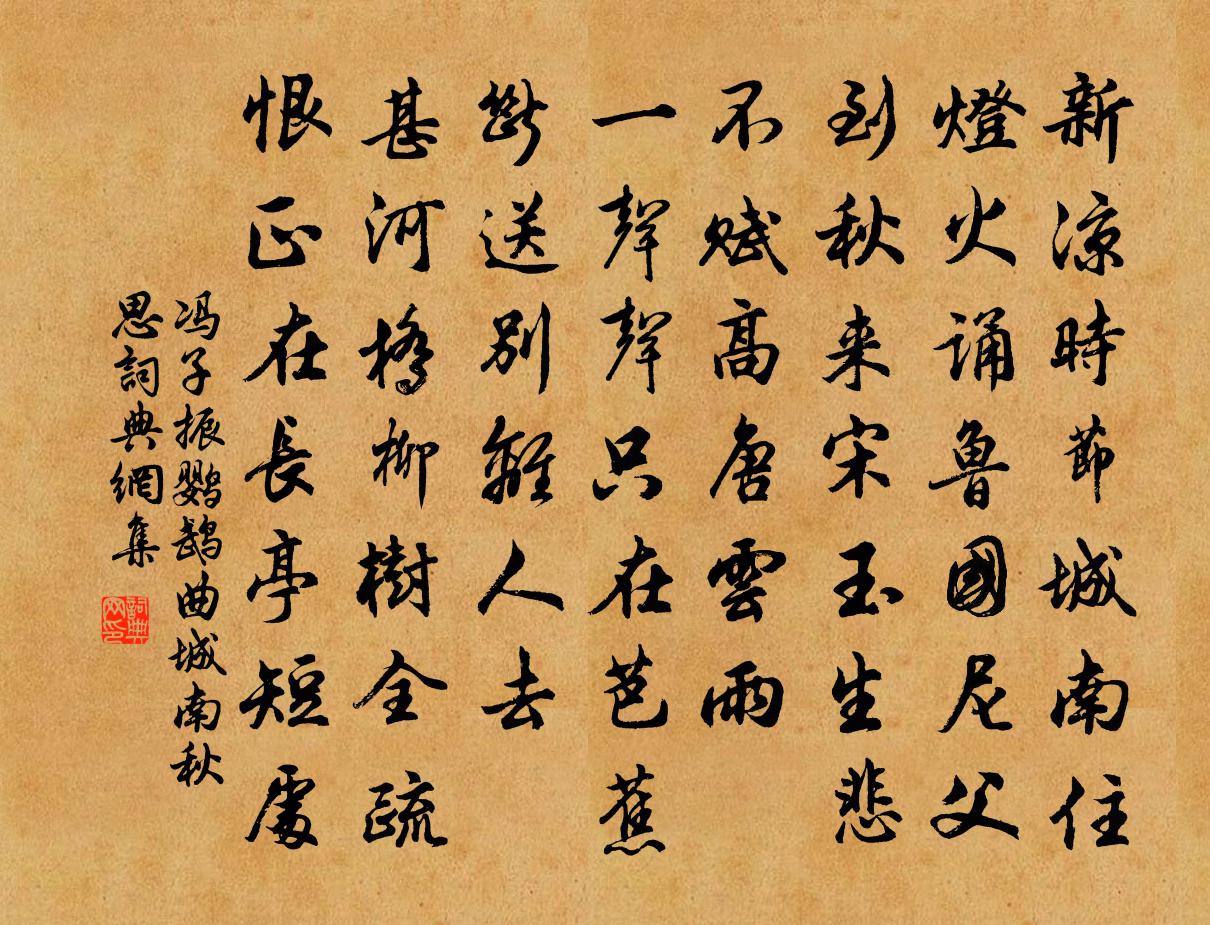 新涼時節城南住
燈火誦魯國尼父
到秋来宋玉生悲
不賦高唐雲雨
一聲聲只在芭蕉
斷送別離人去
甚河橋柳樹全疏
恨正在長亭短處
冯子振鹦鵡曲城南秋
思詞典網集
詞典
网印